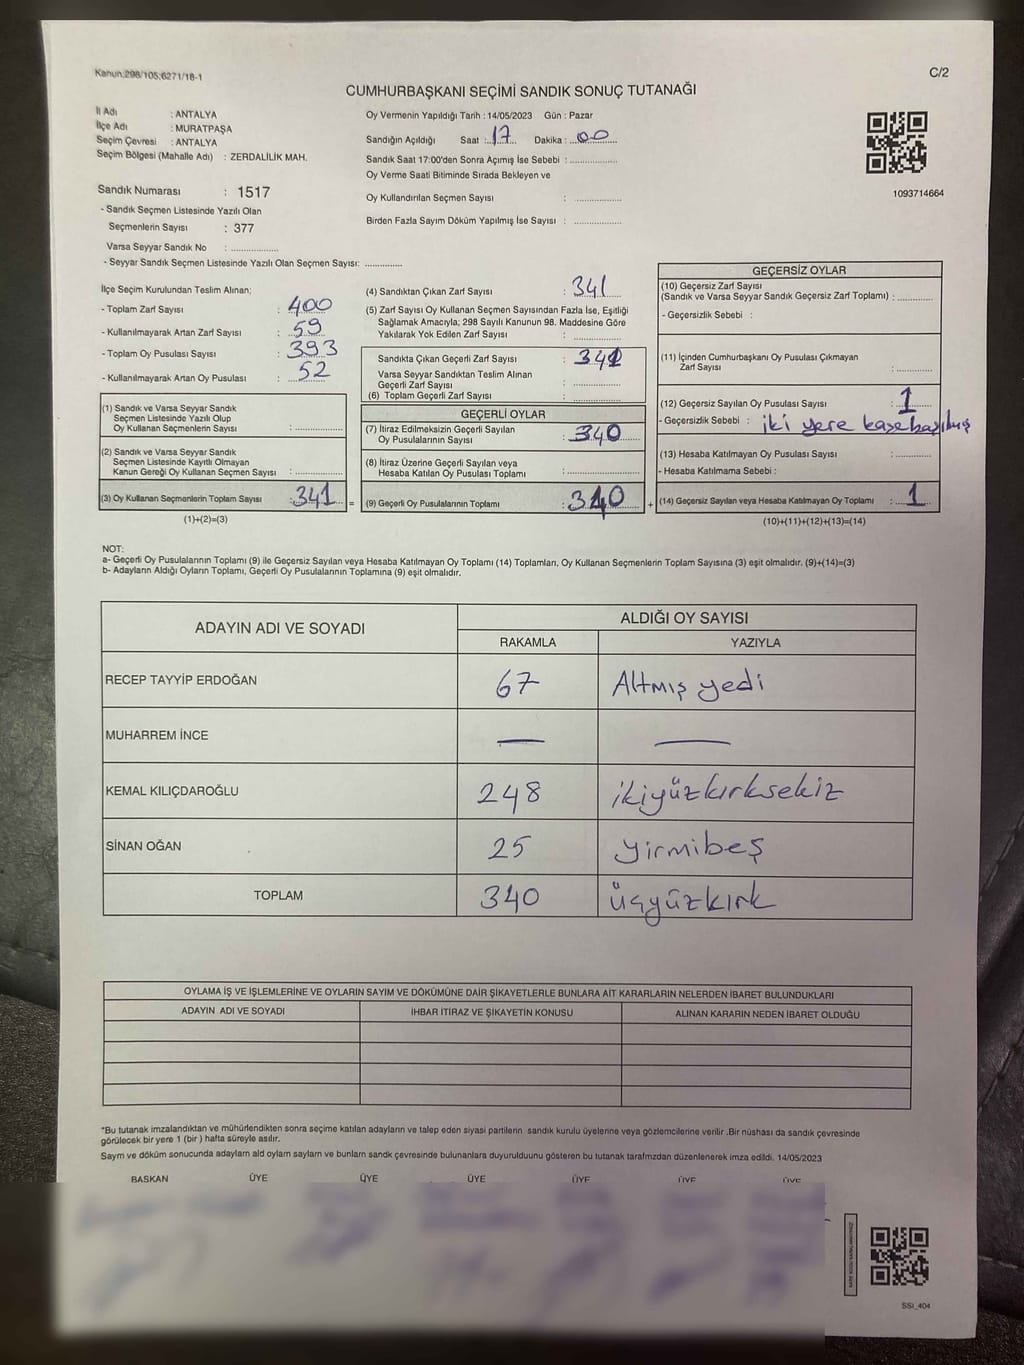 Kanun:298/105;6271/18-1
C/2
CUMHURBAŞKANI SEÇİMİ SANDIK SONUÇ TUTANAĞI
İl Adı : ANTALYA
İlçe Adı : MURATPAŞA
Seçim Çevresi : ANTALYA
Seçim Bölgesi (Mahalle Adı) : ZERDALİLİK MAH.
Oy Vermenin Yapıldığı Tarih : 14/05/2023 Gün : Pazar
Sandığın Açıldığı Saat : 17 Dakika : 00
Sandık Saat 17:00'den Sonra Açımış İse Sebebi : ................
Oy Verme Saati Bitiminde Sırada Bekleyen ve
Oy Kullandırılan Seçmen Sayısı : ................
Birden Fazla Sayım Döküm Yapılmış İse Sayısı : ................
1093714664
Sandık Numarası : 1517
- Sandık Seçmen Listesinde Yazılı Olan
Seçmenlerin Sayısı : 377
Varsa Seyyar Sandık No : ................
- Seyyar Sandık Seçmen Listesinde Yazılı Olan Seçmen Sayısı: .............
İlçe Seçim Kurulundan Teslim Alınan;
- Toplam Zarf Sayısı : 400
- Kullanılmayarak Artan Zarf Sayısı : 59
- Toplam Oy Pusulası Sayısı : 393
- Kullanılmayarak Artan Oy Pusulası : 52
(1) Sandık ve Varsa Seyyar Sandık
Seçmen Listesinde Yazılı Olup
Oy Kullanan Seçmenlerin Sayısı : ................
(2) Sandık ve Varsa Seyyar Sandık
Seçmen Listesinde Kayıtlı Olmayan
Kanun Gereği Oy Kullanan Seçmen Sayısı : ................
(3) Oy Kullanan Seçmenlerin Toplam Sayısı : 341
(1)+(2)=(3)
(4) Sandıktan Çıkan Zarf Sayısı : 341
(5) Zarf Sayısı Oy Kullanan Seçmen Sayısından Fazla İse, Eşitliği
Sağlamak Amacıyla; 298 Sayılı Kanunun 98. Maddesine Göre
Yakılarak Yok Edilen Zarf Sayısı : ................
Sandıkta Çıkan Geçerli Zarf Sayısı : 341
Varsa Seyyar Sandıktan Teslim Alınan
Geçerli Zarf Sayısı : ................
(6) Toplam Geçerli Zarf Sayısı : ................
GEÇERLİ OYLAR
(7) İtiraz Edilmeksizin Geçerli Sayılan
Oy Pusulalarının Sayısı : 340
(8) İtiraz Üzerine Geçerli Sayılan veya
Hesaba Katılan Oy Pusulası Toplamı : ................
= (9) Geçerli Oy Pusulalarının Toplamı : 340
GEÇERSİZ OYLAR
(10) Geçersiz Zarf Sayısı
(Sandık ve Varsa Seyyar Sandık Geçersiz Zarf Toplamı) : ............
- Geçersizlik Sebebi :
(11) İçinden Cumhurbaşkanı Oy Pusulası Çıkmayan
Zarf Sayısı : ............
(12) Geçersiz Sayılan Oy Pusulası Sayısı : 1
- Geçersizlik Sebebi : iki yere kaşe basılmış
(13) Hesaba Katılmayan Oy Pusulası Sayısı : ............
- Hesaba Katılmama Sebebi :
+ (14) Geçersiz Sayılan veya Hesaba Katılmayan Oy Toplamı : 1
(10)+(11)+(12)+(13)=(14)
NOT:
a- Geçerli Oy Pusulalarının Toplamı (9) ile Geçersiz Sayılan veya Hesaba Katılmayan Oy Toplamı (14) Toplamları, Oy Kullanan Seçmenlerin Toplam Sayısına (3) eşit olmalıdır. (9)+(14)=(3)
b- Adayların Aldığı Oyların Toplamı, Geçerli Oy Pusulalarının Toplamına (9) eşit olmalıdır.
ADAYIN ADI VE SOYADI
ALDIĞI OY SAYISI
RAKAMLA YAZIYLA
RECEP TAYYİP ERDOĞAN 67 Altmış yedi
MUHARREM İNCE — —
KEMAL KILIÇDAROĞLU 248 ikiyüzkırksekiz
SİNAN OĞAN 25 yirmibeş
TOPLAM 340 üçyüzkırk
OYLAMA İŞ VE İŞLEMLERİNE VE OYLARIN SAYIM VE DÖKÜMÜNE DAİR ŞİKAYETLERLE BUNLARA AİT KARARLARIN NELERDEN İBARET BULUNDUKLARI
ADAYIN ADI VE SOYADI İHBAR İTİRAZ VE ŞİKAYETİN KONUSU ALINAN KARARIN NEDEN İBARET OLDUĞU
*Bu tutanak imzalandıktan ve mühürlendikten sonra seçime katılan adayların ve talep eden siyasi partilerin sandık kurulu üyelerine veya gözlemcilerine verilir .Bir nüshası da sandık çevresinde
görülecek bir yere 1 (bir ) hafta süreyle asılır.
Sayım ve döküm sonucunda adayların ald oyların sayları ve bunların sandk çevresinde bulunanlara duyurulduunu gösteren bu tutanak tarafmzdan düzenlenerek imza edildi. 14/05/2023
BAŞKAN ÜYE ÜYE ÜYE ÜYE ÜYE ÜYE
SSI_404